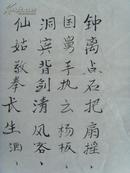 钟离点石把扇摇，
国舅手执云杨板，
洞宾背剑清风客，
仙姑敬奉长生酒，